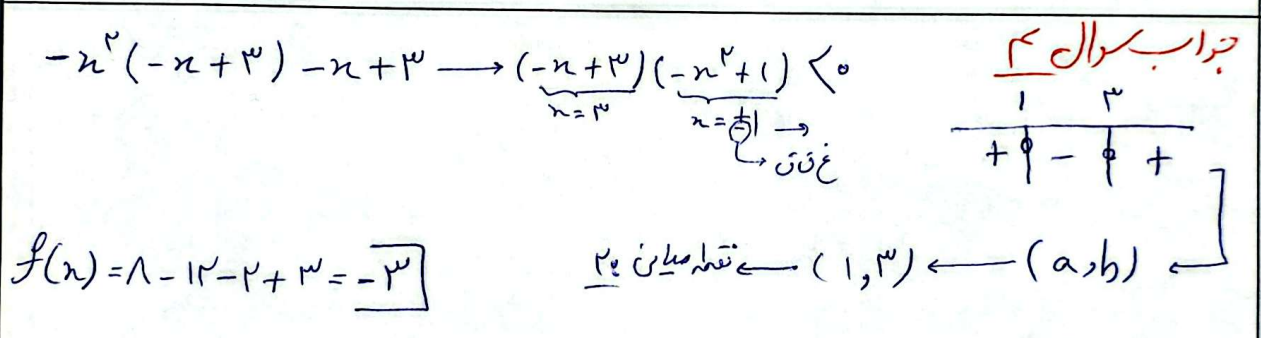 جواب سوال ۴
-x²(-x+۳) -x+۳ → (-x+۳)(-x²+۱) < ۰
x=۳ x=±۱ →
غ ق ق
۱ ۳
+ - +
(a,b) ← (۱,۳) ← نقطه میانی ۲
f(x) = ۸ - ۱۲ - ۲ + ۳ = -۳